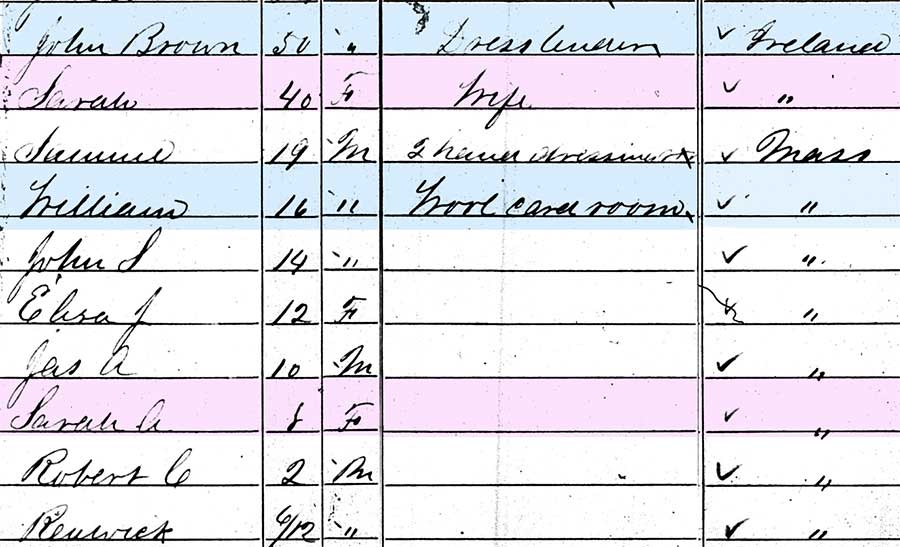 John Brown 50 " Dress tender ✓ Ireland
Sarah 40 F Wife ✓ "
Samuel 19 M 2 hand dressing ✓ Mass
William 16 " Wool card room ✓ "
John S 14 " ✓ "
Eliza J 12 F ✓ "
Jas A 10 M ✓ "
Sarah A 8 F ✓ "
Robert C 2 M ✓ "
Renwick 6/12 " ✓ "